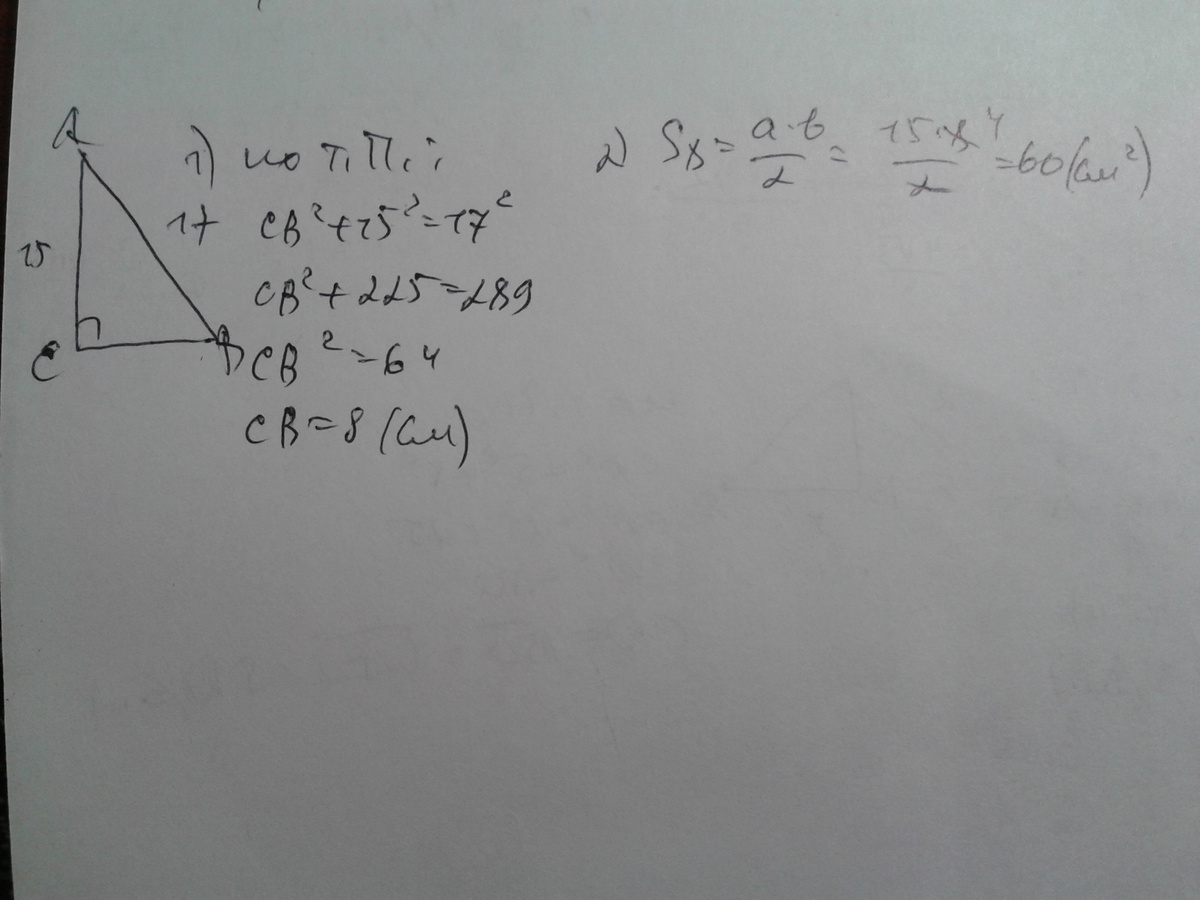 A
15
17
C
B
1) по т. П.:
CB² + 15² = 17²
CB² + 225 = 289
CB² = 64
CB = 8 (см)
2) S = a·b/2 = 15·8⁴/2 = 60 (см²)